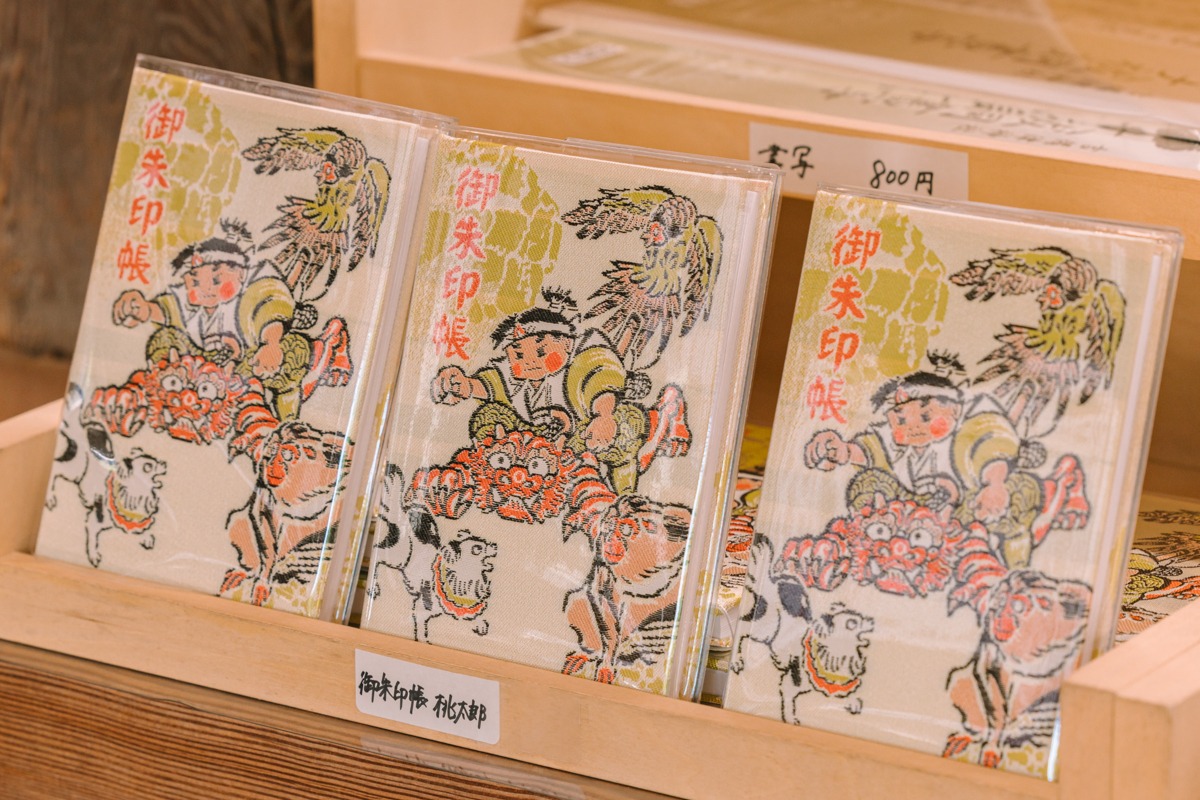 御朱印帳
御朱印帳
御朱印帳
800円
御朱印帳 桃太郎